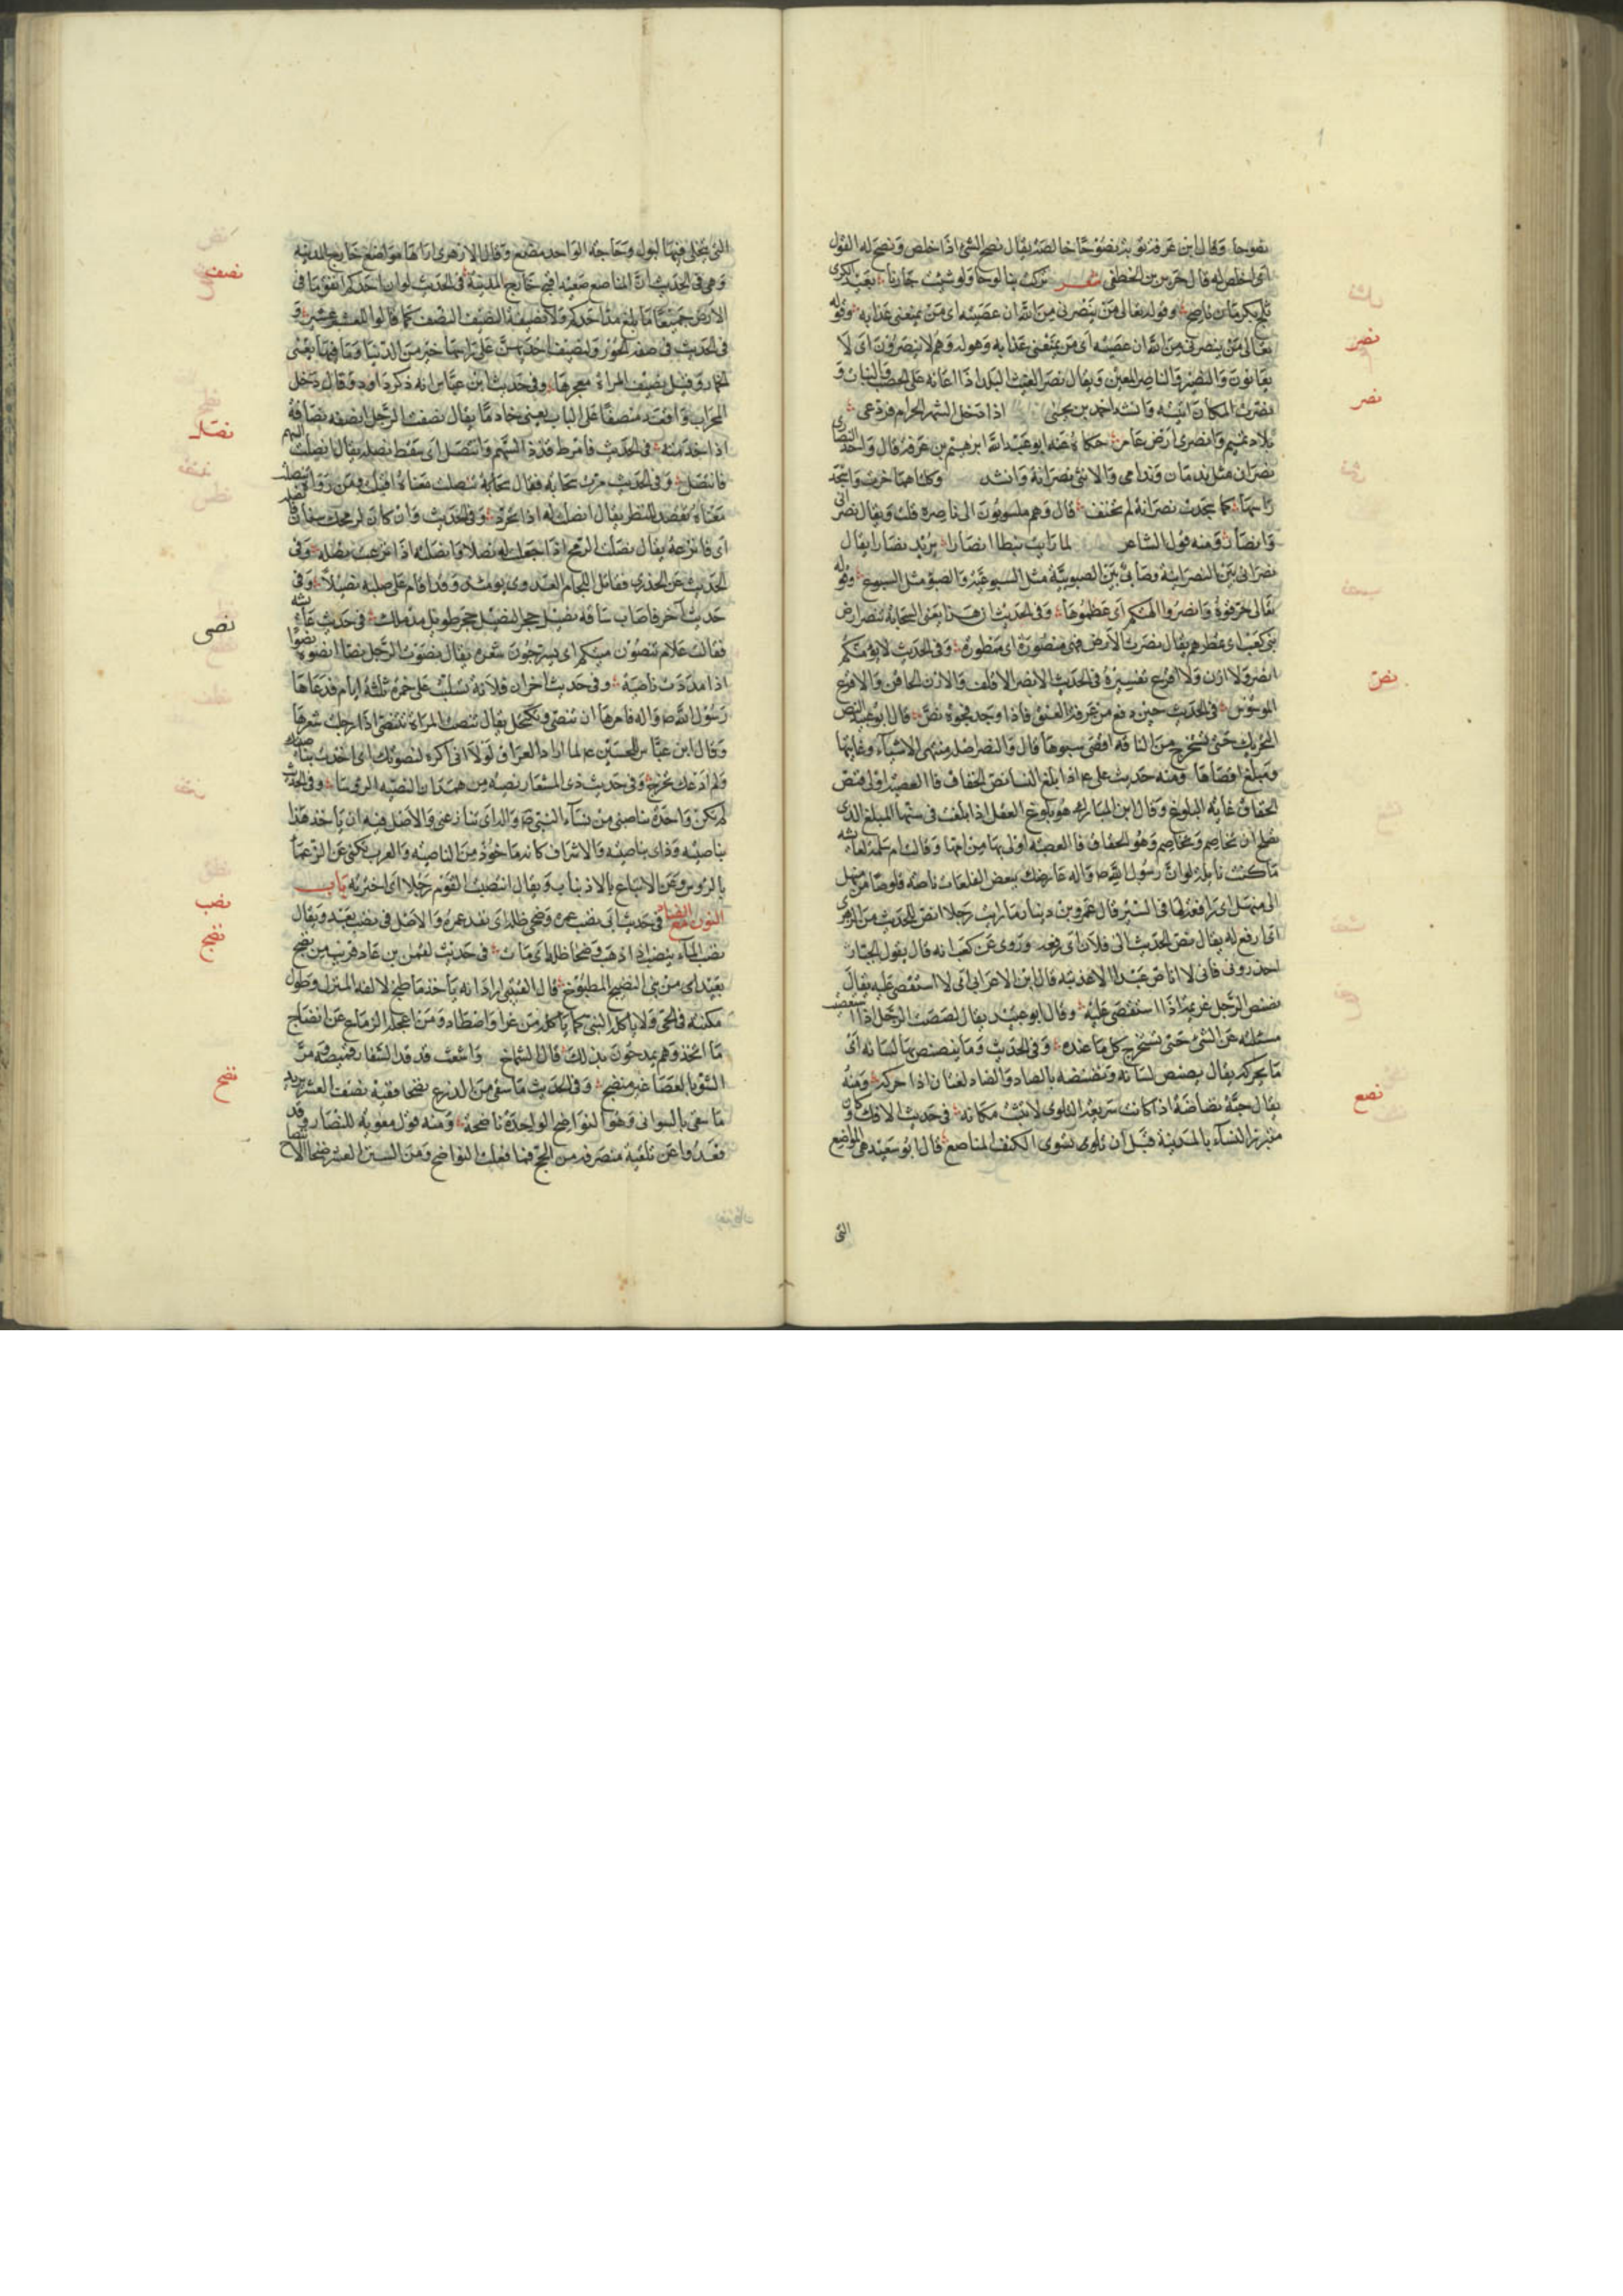 نصوحا وقال ابن عرفة توبة نصوحا خالصة يقال نصح الشئ اذا خلص ونصح له القول
اى اخلص له قال جرير بن الخطفى شعر تركت بنا لوحا ولو شئت جادنا بعيد الكرى
ثلج بكرمان ناصح وقوله تعالى من ينصرنى من الله ان عصيته اى من يمنعنى عذابه وقوله
تعالى من ينصرنى من الله ان عصيته اى من يمنعنى عذابه وهو له وهم لا ينصرون اى لا
يعانون والنصر والناصر المعين ويقال نصر الغيث البلد اذا اعانه على الخصب والنبات و
نصرت المكان اتيته وانشد احمد بن يحيى اذا دخل الشهر الحرام فودعى
بلاد تميم وانصرى ارض عامر حكاه عنه ابو عبد الله ابرهيم بن عرفة قال وواحد النصارى
نصران مثل ندمان وندامى والانثى نصرانة وانشد وكلتاهما خرت واسجد
راسها كما سجدت نصرانة لم تحنف قال وهم منسوبون الى ناصرة قلت ويقال نصرانى
وانصار ومنه قول الشاعر لما رايت نبطا انصارا يريد نصارا يقال
نصرانى بين النصرانية
تعالى حرقوه وانصروا الهتكم اى عظموها وفى الحديث ان هذا يعنى السحابة تنصر ارض
بنى كعب اى تمطرهم يقال نصرت الارض فهى منصورة اى ممطورة وفى الحديث لا يؤمنكم
انصر ولا ازن ولا افرع تفسيره فى الحديث الانصر الاقلف والازن الحاقن والافرع
الموسوس فى الحديث حين دفع من عرفة العنق فاذا وجد فجوة نص قال ابو عبيد النص
التحريك حتى تستخرج من الناقة اقصى سيرها قال والنص اصله منتهى الاشياء وغايتها
ومبلغ اقصاها ومنه حديث على ع اذا بلغ النساء نص الحقاق فالعصبة اولى فنص
الحقاق غاية البلوغ وقال ابن المبارك هو بلوغ العقل اذا بلغت فى سنها المبلغ الذى
يصلح ان تخاصم وتخاصم وهو الحقاق فالعصبة اولى بها من امها وقالت ام سلمة لعائشة
ما كنت قايلة لو ان رسول الله ص واله عارضك ببعض الفلوات ناصة قلوصا من منهل
الى منهل اى رافعة لها فى السير قال عمرو بن دينار ما رايت رجلا انص للحديث من الزهرى
اى ارفع له يقال نص الحديث الى فلان اى رفعه وروى عن كعب انه قال يقول الجبار
احذرونى فانى لا اناص عبدا الا عذبته قال ابن الاعرابى اى لا استقصى عليه يقال
نصص الرجل غريمه اذا استقصى عليه وقال ابو عبيد يقال نصصت الرجل اذا استقصيت
مسئلته عن الشئ حتى تستخرج كل ما عنده وفى الحديث وما ينصنص بها لسانه اى
ما يحركه يقال نصنص لسانه ونضنضه بالصاد والضاد لغتان اذا حركه ومنه
يقال حية نضناضة اذا كانت سريعة التلوى لا تثبت مكانها فى حديث الافك وكان
متبرز النساء بالمدينة قبل ان تسوى الكنف المناصع قال ابو سعيد هى المواضع
التى
نصر
نصر
نص
نصع
التى يتخلى فيها لبول وحاجة الواحد منصع وقال الازهرى اراها مواضع خارج المدينة
وهى فى الحديث ان المناصع صعيد افيح خارج المدينة فى الحديث لو ان احدكم انفق ما فى
الارض جميعا ما بلغ مد احدكم ولا نصيفه النصيف النصف كما قالوا للعشر عشير و
فى الحديث فى صفة الحور ولنصيف احديهن على راسها خير من الدنيا وما فيها يعنى
الخمار وقيل نصيف المراة معجرها وفى حديث ابن عباس انه ذكر داود وقال دخل
المحراب واقعد منصفا على الباب يعنى خادما يقال نصفت الرجل انصفه نصافة
اذا خدمته فى الحديث فامرط قذذ السهم وانتصل اى سقط نصله يقال انصلت السهم
فانتصل وفى الحديث مرت سحابة فقال سحابة تنصلت معناه اقبلت ومن رواه تنصلت
معناه تقصد للمطر يقال انصلت له اذا تجرد وفى الحديث وان كان لرمحك سنان فانصله
اى فانزعه يقال نصلت الرمح اذا جعلت له نصلا وانصلته اذا نزعت نصله وفى
الحديث عن الخدرى فقام النحام العدوى يومئذ وقد اقام على صلبه نصيلا وفى
حديث اخر فاصاب ساقه نصيل حجر النصيل حجر طويل مدملك فى حديث عائشة
فقالت علام تنصون ميتكم اى يسرحون شعره يقال نصوت الرجل انصوه نصوا
اذا مددت ناصيته وفى حديث اخر ان فلانة تسلبت على حمزة ثلثة ايام فدعاها
رسول الله ص واله فامرها ان تنصى وتكتحل يقال تنصت المراة تتنصى اذا رجلت شعرها
وقال ابن عباس للحسين ع لما اراد العراق لولا انى اكره لنصوتك اى اخذت بناصيتك
ولم ادعك تخرج وفى حديث ذى المشعار نصية من همدان النصية الرؤساء وفى الحديث
لم تكن واحدة تناصينى من نساء النبى ص واله اى تنازعنى والاصل فيه ان ياخذ هذا
بناصية وذاك بناصية والاشراف كانه ماخوذ من الناصية والعرب تكنى عن الزعماء
بالرؤس وعن الاتباع بالاذناب ويقال انتصيت القوم رجلا اى اخترته باب
النون مع الضاد فى حديث ابى نضب عمره وضحى ظله اى نفد عمره والاصل فى نضب بعد ويقال
نضب الماء ينضب اذا ذهب وضحا ظله اى مات فى حديث لقمن بن عاد قريب من نضيج
بعيد اى من نى النضيج المطبوخ قال القتيبى اراد انه ياخذ ما طبخ لالفه المنزل وطول
مكثه فى الحى ولا ياكل النى كما ياكل من غزا واصطاد ومن اعجله الزماع عن انضاج
ما اتخذ وهم يمدحون بذلك قال الشماخ واشعث قد قد السفار قميصه وجر
الشواء بالعصا غير منضج وفى الحديث ما سقى من الزرع نضحا ففيه نصف العشر يريد
ما سقى بالسوانى وهو النواضح الواحدة ناضحة ومنه قول معوية للنصار وقد
قعدوا عن تلقيه منصرفه من الحج فما فعلت النواضح
نصف
نصل
نصى
نضب
نضج
نضح